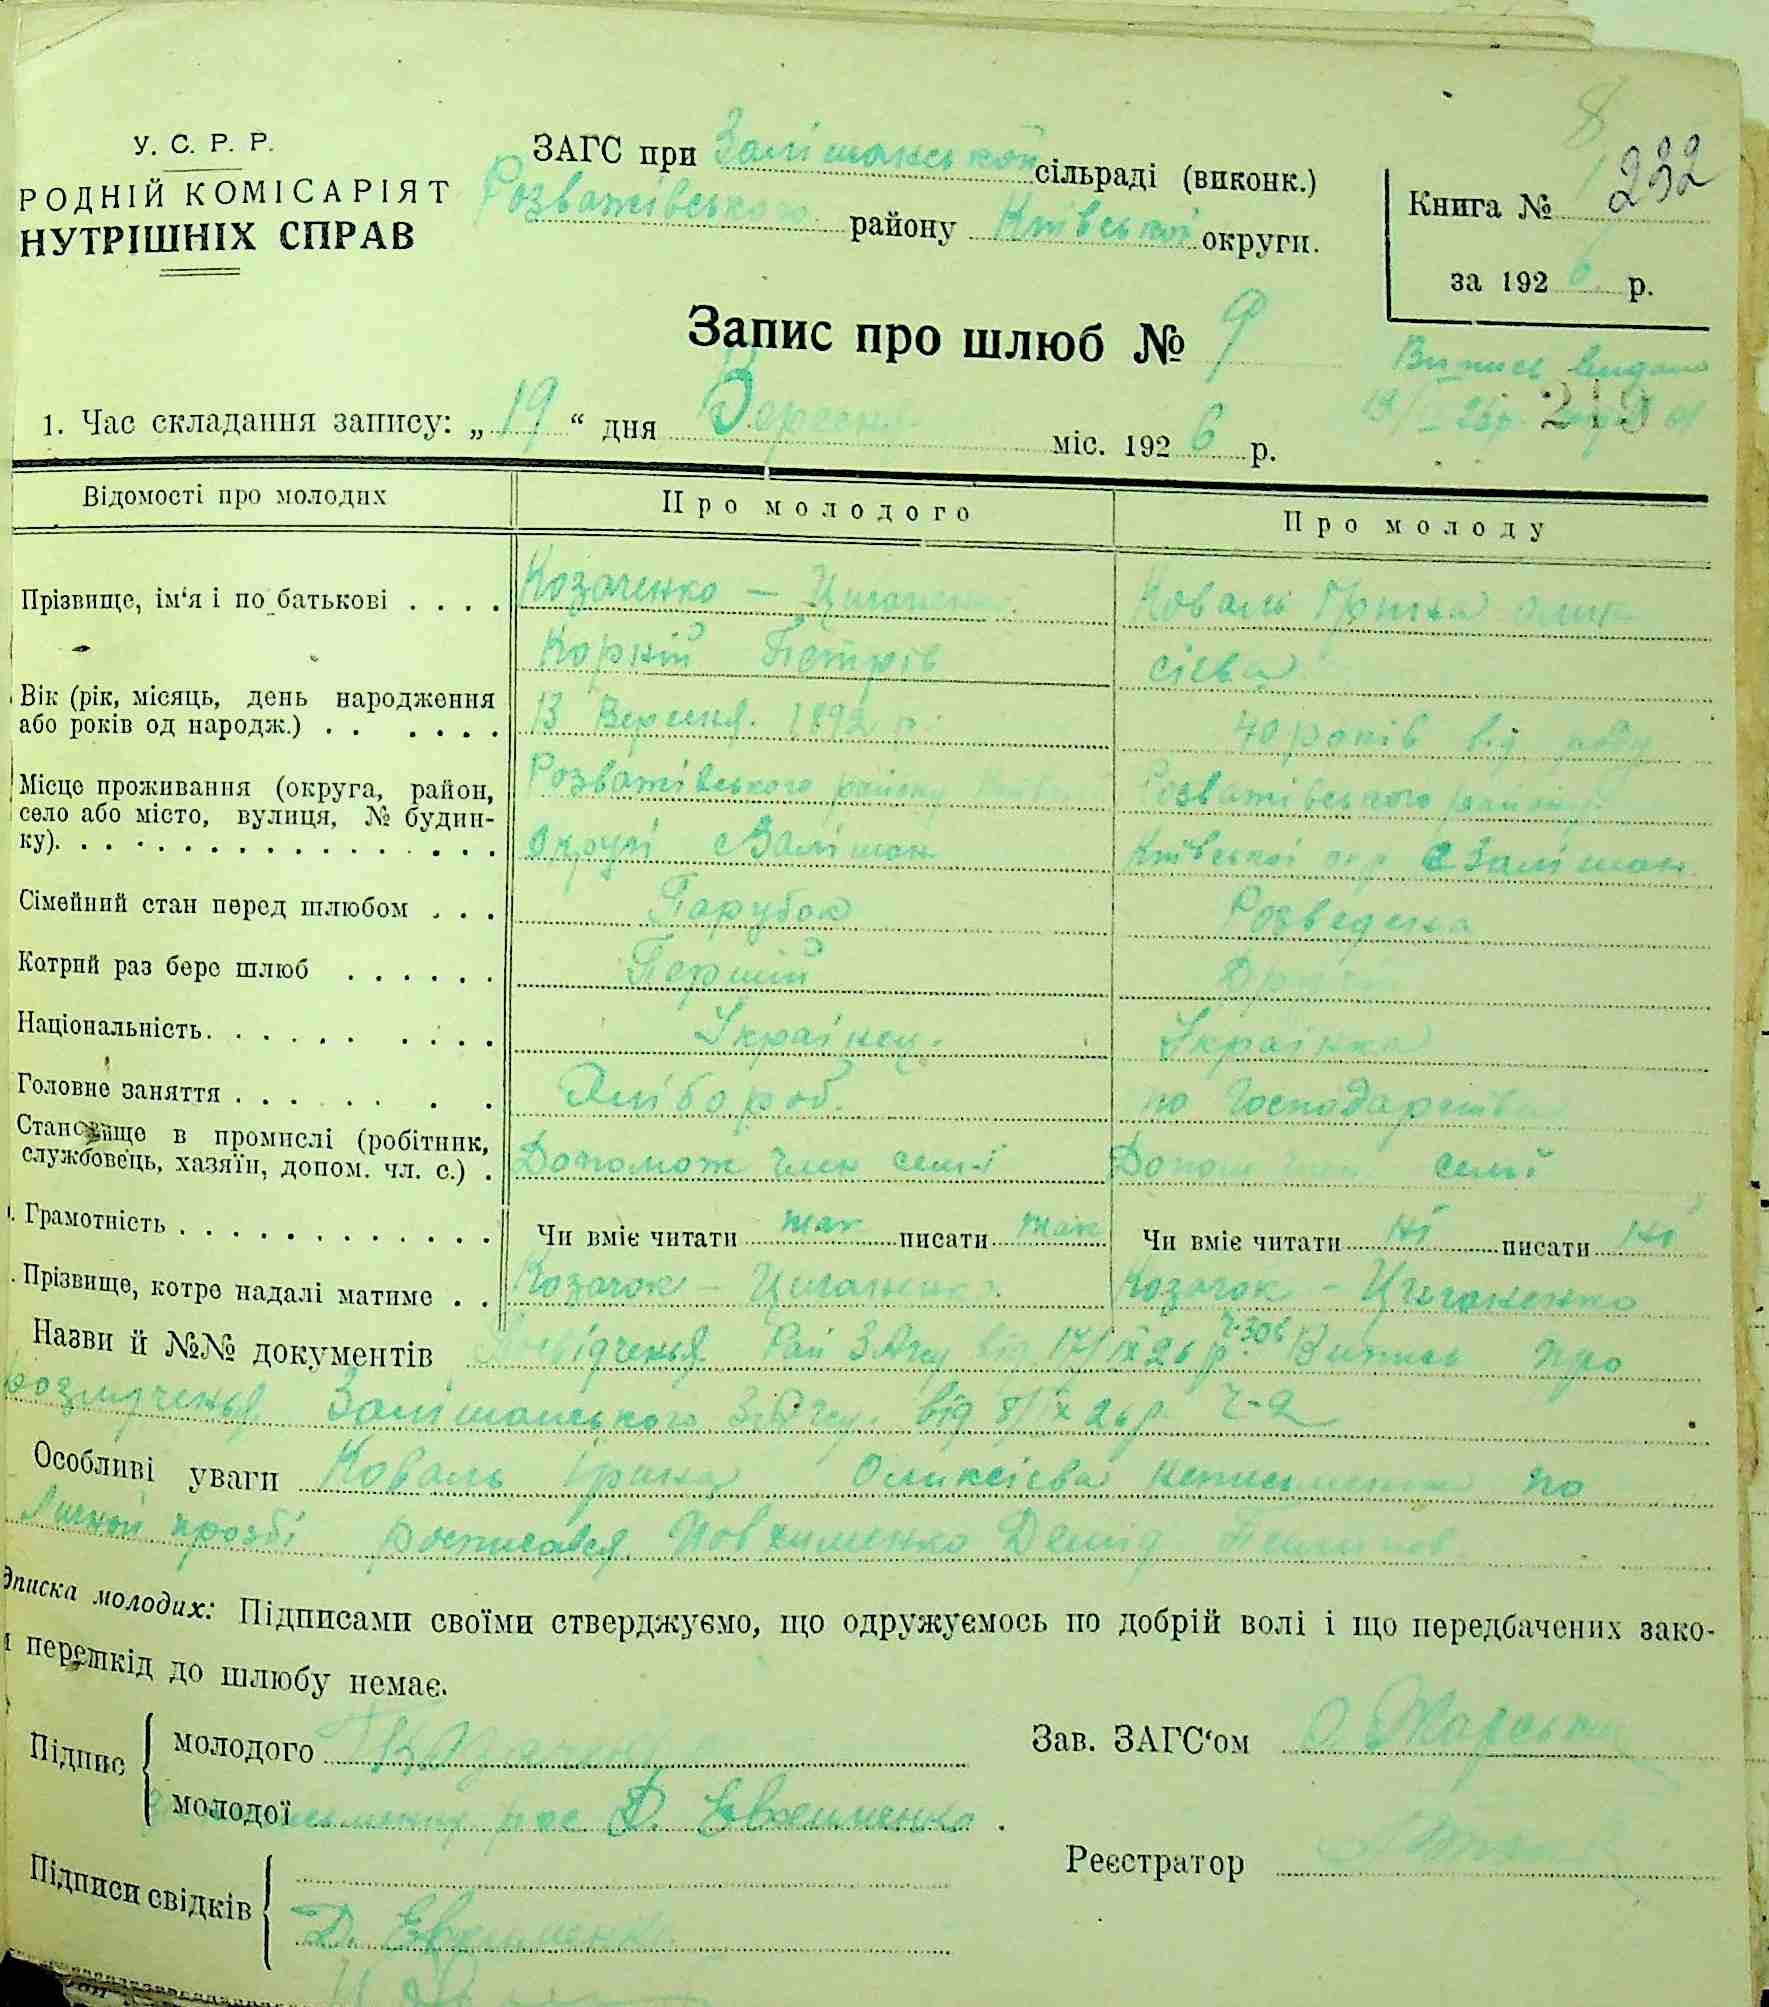 У. С. Р. Р.
РОДНІЙ КОМІСАРІЯТ
НУТРІШНІХ СПРАВ
ЗАГС при Залішанській сільраді (виконк.)
Розважівського району Київської округи.
Книга №
232
за 1926 р.
Запис про шлюб № 9
Випись видана
219
1. Час складання запису: „19“ дня Вересня міс. 1926 р.
Відомості про молодих
Про молодого
Про молоду
Прізвище, ім'я і по батькові . . . .
Козаченко — Циганенко
Коваль Ірина Олик
Корній Петрів
сієва
Вік (рік, місяць, день народження
або років од народж.) . . . . . .
13 Вересня. 1892 р.
40 років від роду
Місце проживання (округа, район,
село або місто, вулиця, № будин-
ку). . . . . . . . . . . . . . .
Розважівського району Київ
Розважівського району
округі с Залішан
Київської окр с Залішан
Сімейний стан перед шлюбом . . .
Парубок
Розведена
Котрий раз бере шлюб . . . . . .
Перший
Національність. . . . . . . . . .
Українец.
Українка
Головне заняття . . . . . . . .
Хлібороб.
по Господарству
Становище в промислі (робітник,
службовець, хазяїн, допом. чл. с.) .
Допомож член семі
Допом член семьї
. Грамотність . . . . . . . . . . . .
Чи вміє читати так писати так
Чи вміє читати ні писати ні
. Прізвище, котре надалі матиме . .
Козачок — Циганенко
Козачок — Циганенко
Назви й №№ документів Посвідченья Рай ЗАГСу від 17/IX 26 р ч-306 Випись про
розлученья Залішанського ЗАГСу. від IX 26 р. ч-2
Особливі уваги Коваль Ірина Оликсієва неписьменна по
Личной прозбі росписався Демід
дписка молодих: Підписами своїми стверджуємо, що одружуємось по добрій волі і що передбачених зако-
перешкід до шлюбу немає.
Підпис
молодого
Зав. ЗАГС'ом
молодої рос Д. Евхименко.
Реєстратор
Підписи свідків
Д. Евхименко